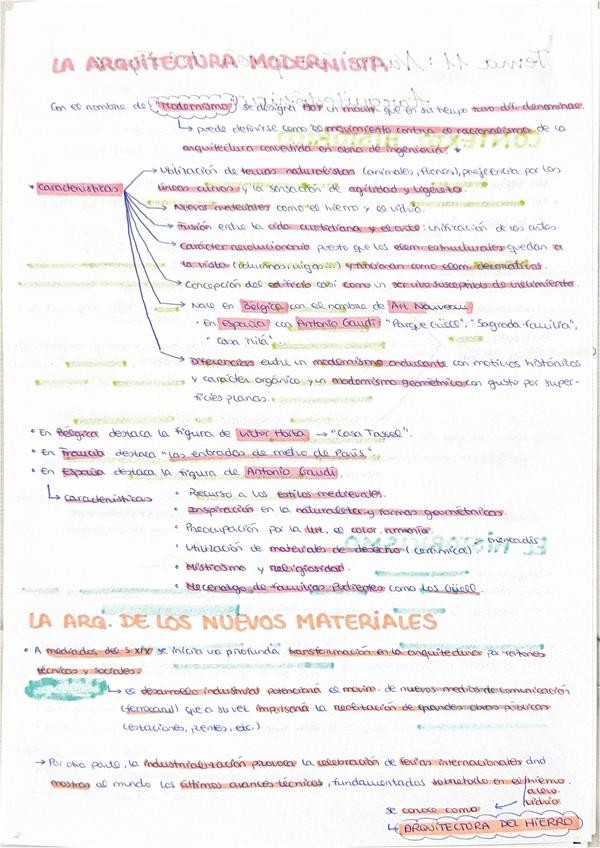 LA ARQUITECTURA MODERNISTA
Con el nombre de "Modernismo" se designa hoy un movim. que en su tiempo tuvo dif. denominac.
↳ puede definirse como el movimiento contra el racionalismo de la
arquitectura convertida en obra de ingeniería. *
* características
→ Utilización de temas naturalistas (animales, flores), preferencia por las
líneas curvas y la sensación de agilidad y ligereza.
→ Nuevos materiales como el hierro y el vidrio.
→ Fusión entre la vida cuotidiana y el arte: unificación de las artes.
→ Carácter revolucionario puesto que los elem. estructurales quedan a
la vista (columnas, vigas...) y funcionan como elem. decorativos.
→ Concepción del edificio casi como un ser vivo susceptible de crecimiento.
→ Nace en Bélgica con el nombre de Art Nouveau
• En España con Antonio Gaudí: "Parque Güell", "Sagrada Familia",
"Casa Milá"...
→ Diferencias entre un modernismo ondulante con motivos históricos
y carácter orgánico y un modernismo geométrico con gusto por super-
ficies planas.
• En Bélgica destaca la figura de Víctor Horta → "Casa Tassel".
• En Francia destaca "las entradas de metro de París"
• En España destaca la figura de Antonio Gaudí.
↳ características
• Recurso a los estilos medievales.
• Inspiración en la naturaleza y formas geométricas.
• Preocupación por la luz, el color, armonía.
• Utilización de materiales de desecho (cerámica) = trencadís
• Misticismo y religiosidad.
• Mecenazgo de familias pudientes como los Güell.
LA ARQ. DE LOS NUEVOS MATERIALES
• A mediados del S.XIX se inicia una profunda transformación en la arquitectura por razones
técnicas y sociales.
↳ el desarrollo industrial potenciará el movim. de nuevos medios de comunicación
(ferrocarril) que a su vez impulsará la realización de grandes obras públicas
(estaciones, puentes, etc.)
→ Por otra parte, la industrialización provoca la celebración de ferias internacionales dnd
mostrar al mundo los últimos avances técnicos, fundamentados sobretodo en el hierro.
acero.
vidrio.
se conoce como
↳ ARQUITECTURA DEL HIERRO